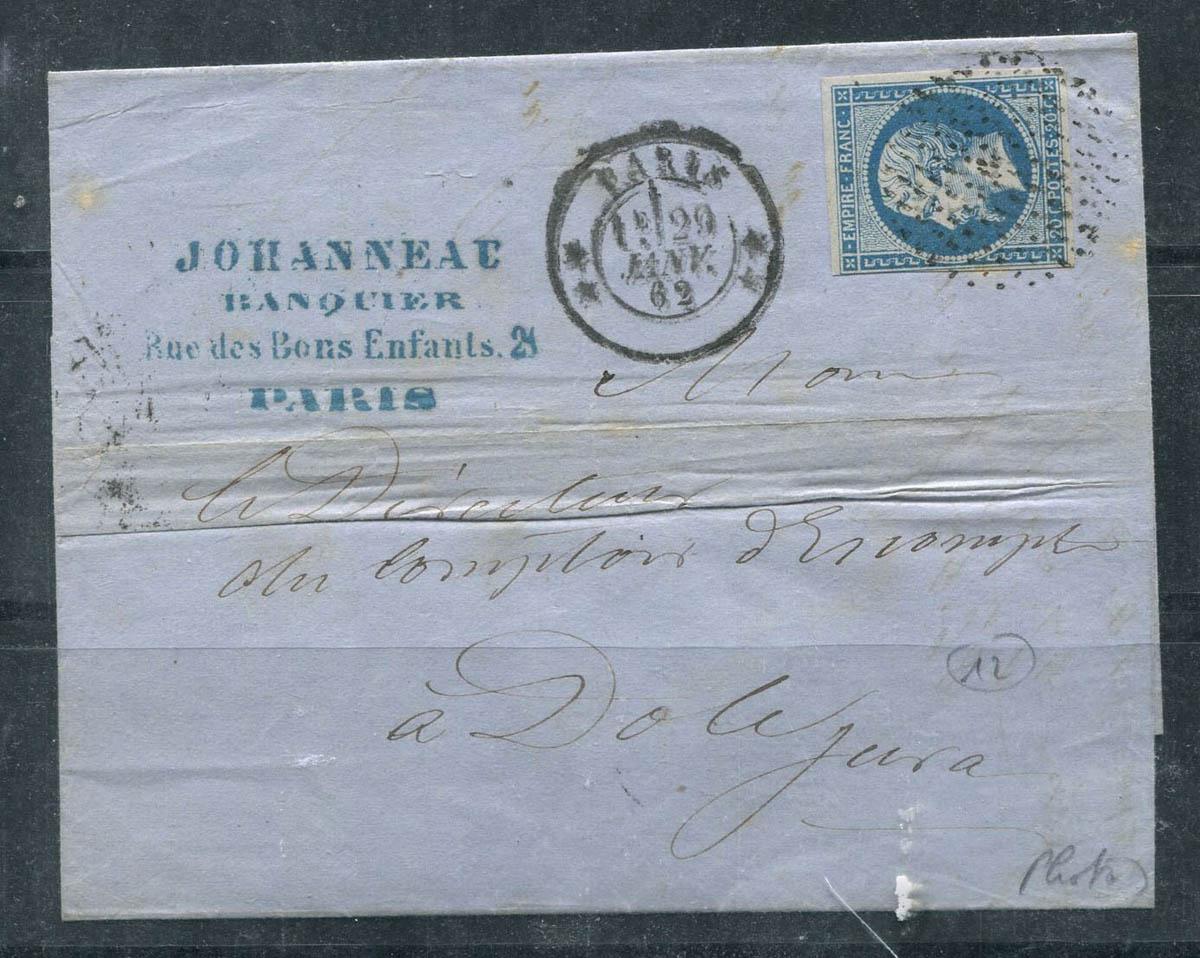 JOHANNEAU
BANQUIER
Rue des Bons Enfants. 28
PARIS
PARIS
1E 29
JANV.
62
EMPIRE · FRANC ·
20 C · POSTES · 20 C
Mon
le Directeur
du Comptoir d'Escompte
à Dole
Jura
12
Photo